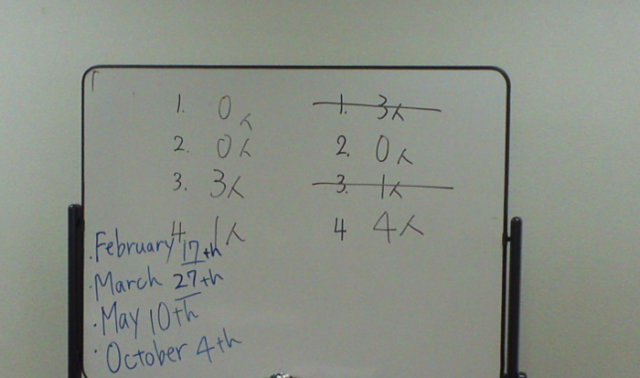 1. 0人
2. 0人
3. 3人
4 1人
1. 3人
2. 0人
3. 1人
4 4人
·February 17th
·March 27th
·May 10th
·October 4th